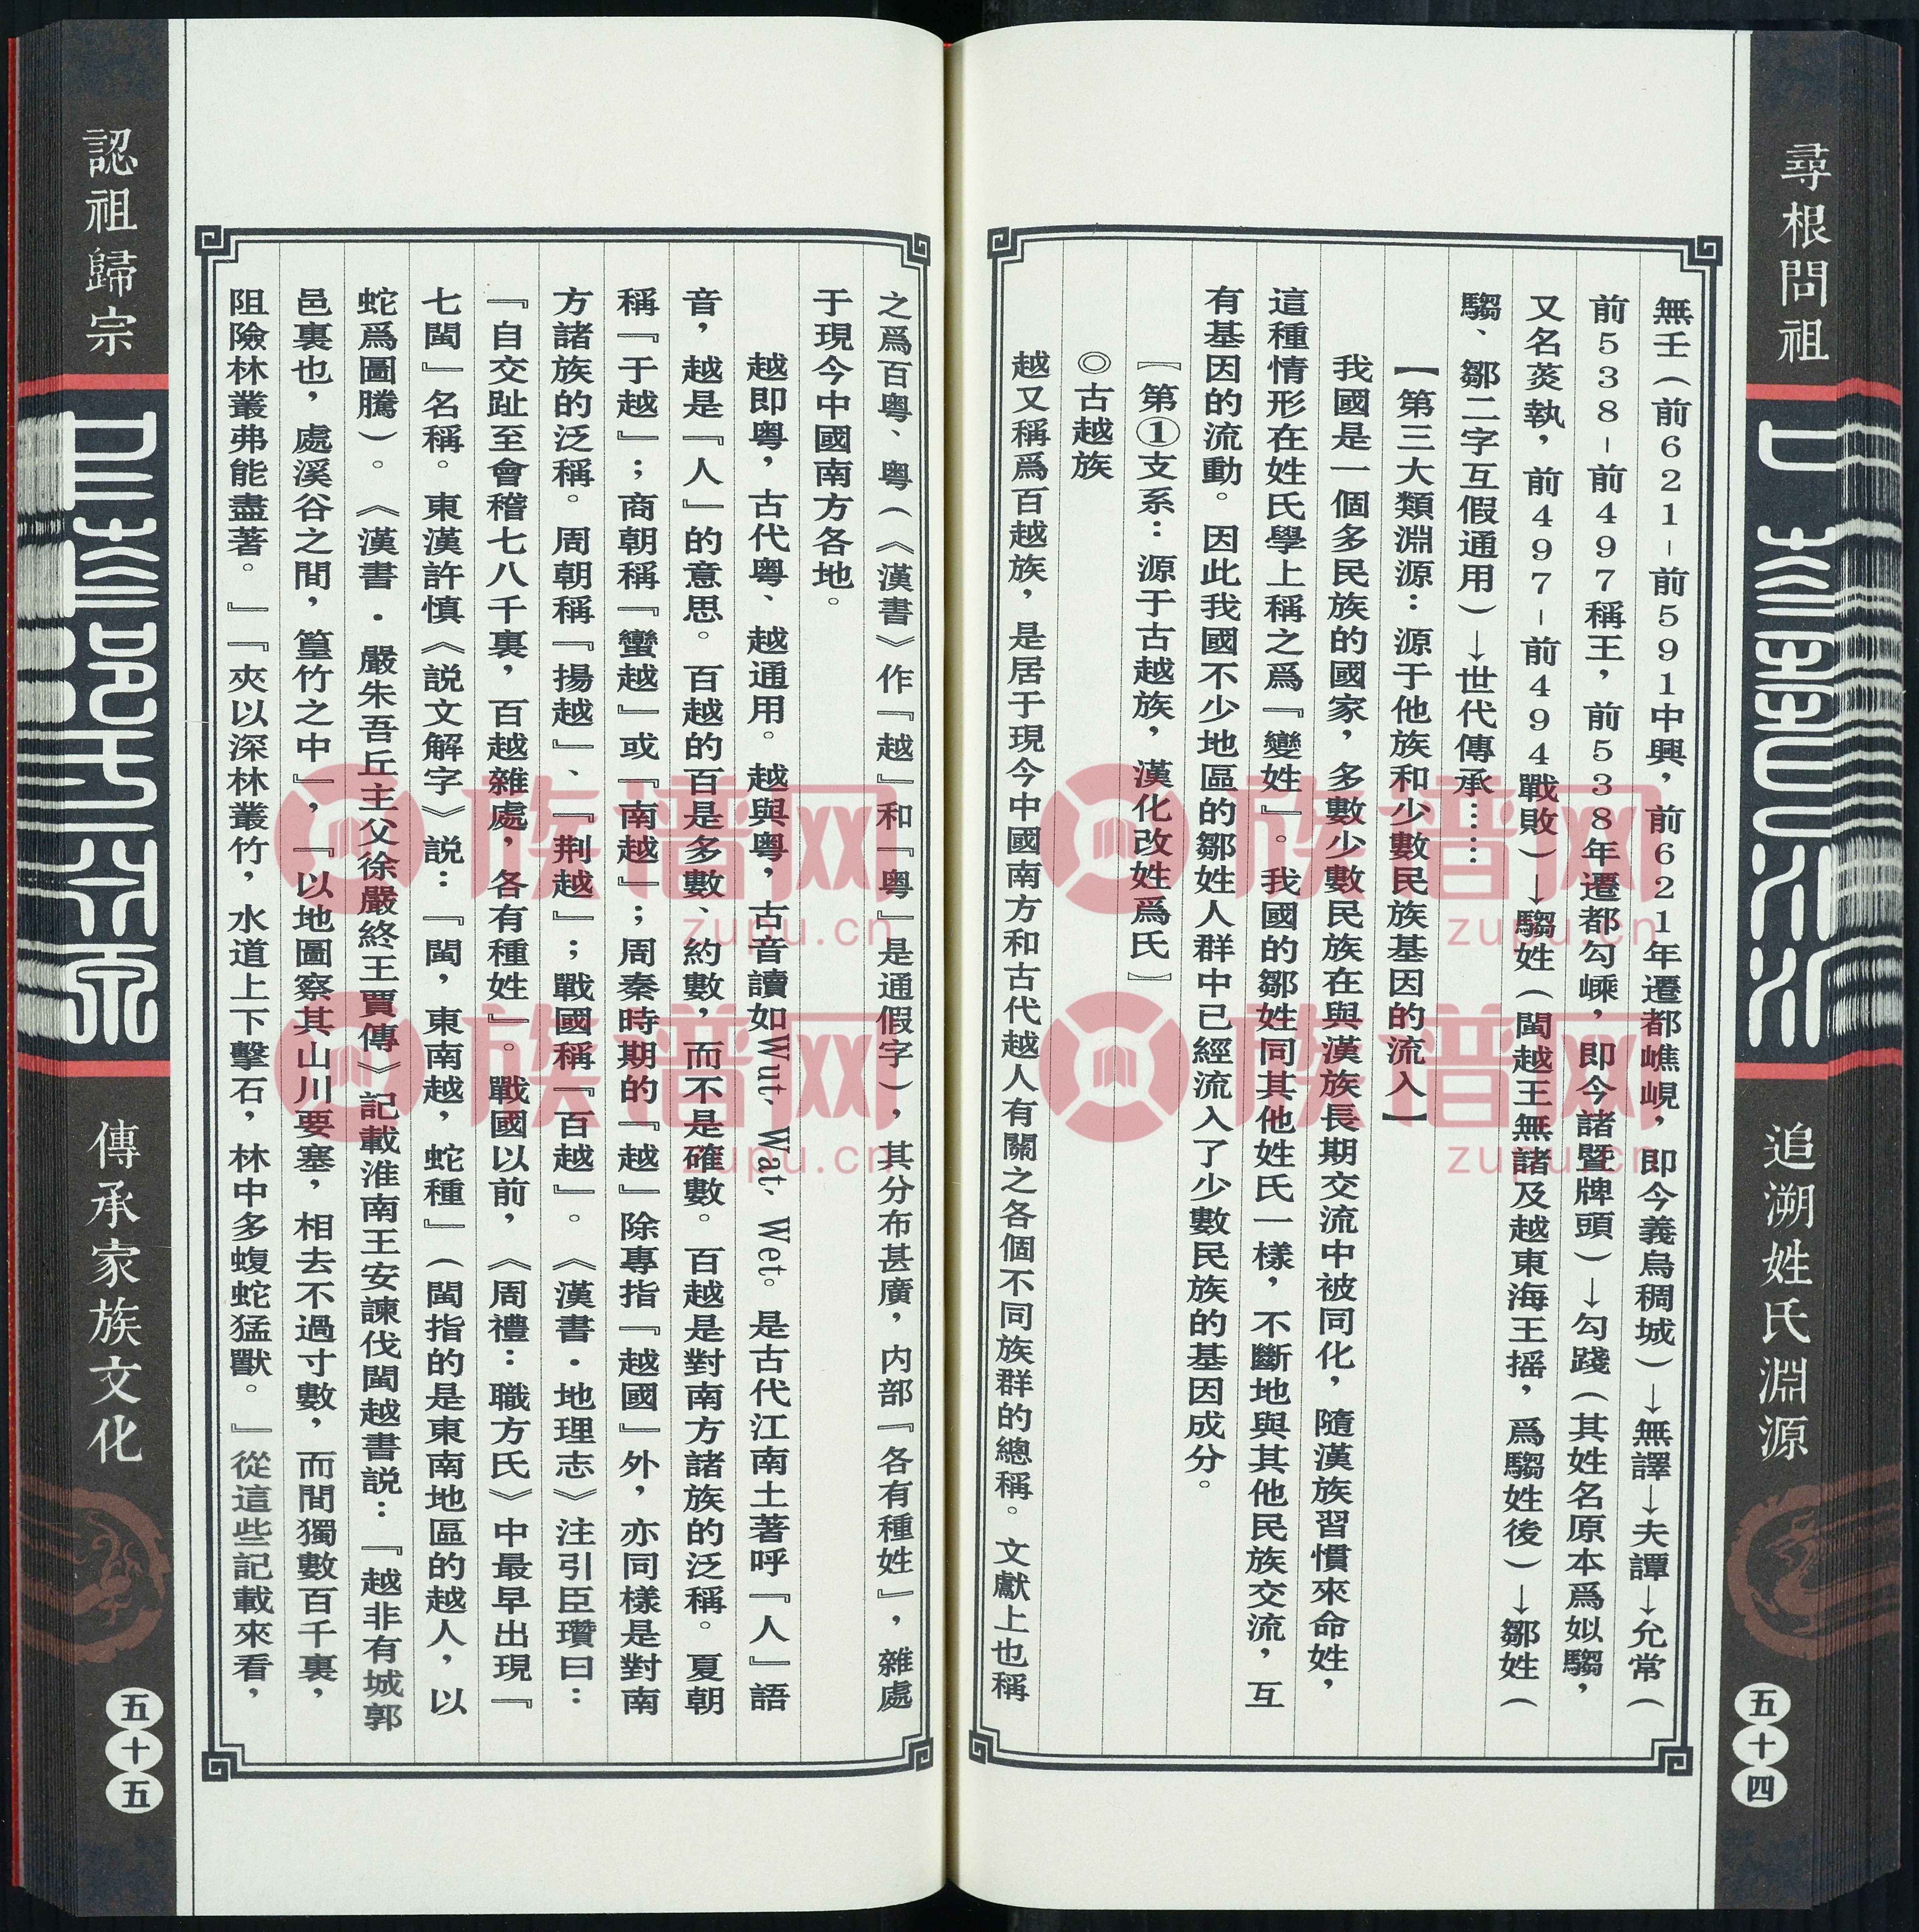 尋根問祖
追溯姓氏淵源
五十四
無壬（前621-前591中興，前621年遷都嶕峴，即今義烏稠城）→無譯→夫譚→允常（
前538-前497稱王，前538年遷都勾嵊，即今諸暨牌頭）→勾踐（其姓名原本爲姒騶，
又名菼執，前497-前494戰敗）→騶姓（閩越王無諸及越東海王摇，爲騶姓後）→鄒姓（
騶、鄒二字互假通用）→世代傳承……
【第三大類淵源：源于他族和少數民族基因的流入】
我國是一個多民族的國家，多數少數民族在與漢族長期交流中被同化，隨漢族習慣來命姓，
這種情形在姓氏學上稱之爲『變姓』。我國的鄒姓同其他姓氏一樣，不斷地與其他民族交流，互
有基因的流動。因此我國不少地區的鄒姓人群中已經流入了少數民族的基因成分。
〖第①支系：源于古越族，漢化改姓爲氏〗
◎古越族
越又稱爲百越族，是居于現今中國南方和古代越人有關之各個不同族群的總稱。文獻上也稱
之爲百粵、粵（《漢書》作『越』和『粵』是通假字），其分布甚廣，内部『各有種姓』，雜處
于現今中國南方各地。
越即粵，古代粵、越通用。越與粵，古音讀如Wut、Wat、Wet。是古代江南土著呼『人』語
音，越是『人』的意思。百越的百是多數、約數，而不是確數。百越是對南方諸族的泛稱。夏朝
稱『于越』；商朝稱『蠻越』或『南越』；周秦時期的『越』除專指『越國』外，亦同樣是對南
方諸族的泛稱。周朝稱『揚越』、『荆越』；戰國稱『百越』。《漢書·地理志》注引臣瓚曰：
『自交趾至會稽七八千裏，百越雜處，各有種姓』。戰國以前，《周禮：職方氏》中最早出現『
七閩』名稱。東漢許慎《説文解字》説：『閩，東南越，蛇種』（閩指的是東南地區的越人，以
蛇爲圖騰）。《漢書·嚴朱吾丘主父徐嚴終王賈傳》記載淮南王安諫伐閩越書説：『越非有城郭
邑裏也，處溪谷之間，篁竹之中』，『以地圖察其山川要塞，相去不過寸數，而間獨數百千裏，
阻險林叢弗能盡著。』『夾以深林叢竹，水道上下擊石，林中多蝮蛇猛獸。』從這些記載來看，
認祖歸宗
傳承家族文化
五十五
族谱网
zupu.cn
族谱网
zupu.cn
族谱网
zupu.cn
族谱网
zupu.cn